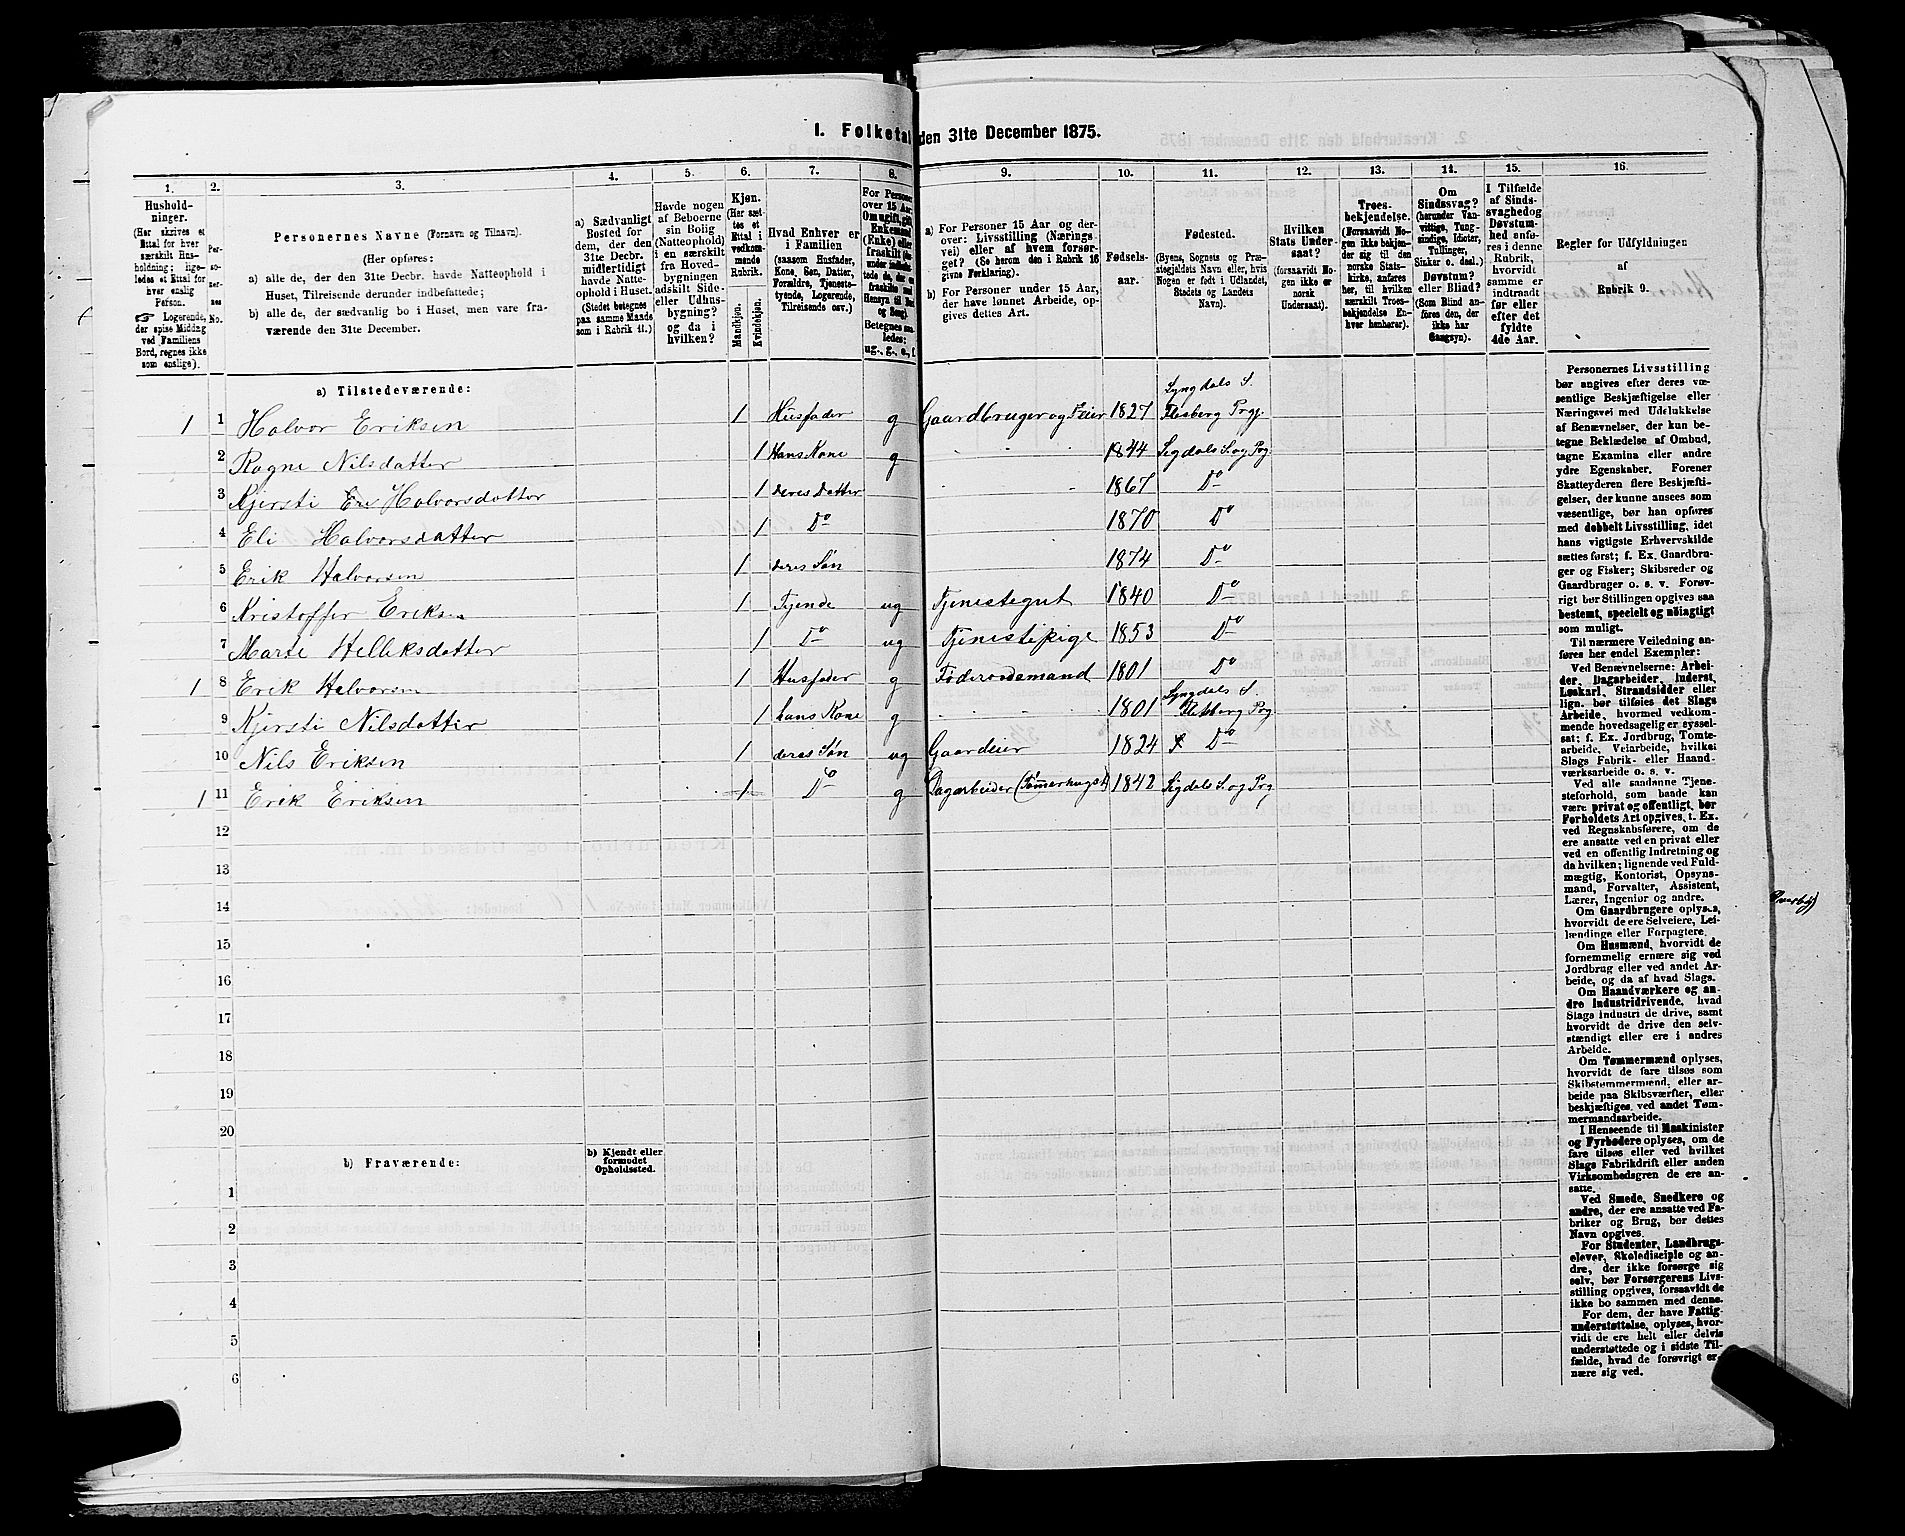 I. Folketal den 31te December 1875.
1. 2. 3. 4. 5. 6. 7. 8. 9. 10. 11. 12. 13. 14. 15. 16.
Hushold-
ninger.
(Her skrives et
Ettal for hver
særskilt Hus-
holdning; lige-
ledes et Ettal for
hver enslig
Person.
☞ Logerende,
der spise Middag
ved Familiens
Bord, regnes ikke
som enslige).
Per-
so-
ner-
nes
No.
Personernes Navne (Fornavn og Tilnavn).
(Her opføres:
a) alle de, der den 31te Decbr. havde Natteophold i
Huset, Tilreisende derunder indbefattede;
b) alle de, der sædvanlig bo i Huset, men vare fra-
værende den 31te December.
a) Sædvanligt
Bosted for
dem, der den
31te Decbr.
midlertidigt
havde Natte-
ophold i Huset.
(Stedet betegnes
paa samme Maade
som i Rubrik 11.)
Havde nogen
af Beboerne
sin Bolig
(Natteophold)
i en særskilt
fra Hoved-
bygningen
adskilt Side-
eller Udhus-
bygning?
og da i
hvilken?
Kjøn.
(Her sæt-
tes et
Ettal i
vedkom-
mende
Rubrik.
Mandkjøn.
Kvindekjøn.
Hvad Enhver er
i Familien
(saasom Husfader,
Kone, Søn, Datter,
Forældre, Tjeneste-
tyende, Logerende,
Tilreisende osv.)
For Personer
over 15 Aar:
Om ugift, gift,
Enkemand
(Enke) eller
fraskilt
Betegnes saa-
ledes:
ug., g., e., f.
a) For Personer 15 Aar og der-
over: Livsstilling (Nærings-
vei) eller af hvem forsør-
get? (Se herom den i Rubrik 16
givne Forklaring).
b) For Personer under 15 Aar,
der have lønnet Arbeide, op-
gives dettes Art.
Fødsels-
aar.
Fødested.
(Byens, Sognets og Præ-
stegjeldets Navn eller, hvis
Nogen er født i Udlandet,
Stedets og Landets
Navn).
Hvilken
Stats Under-
saat?
(forsaavidt No-
gen ikke er
norsk
Undersaat).
Troes-
bekjendelse.
(Forsaavidt No-
gen ikke bekjen-
der sig til den
norske Stats-
kirke, anføres
her, til hvilken
særskilt Troes-
bekjendelse En-
hver henhører).
Om
Sindssvag?
(herunder Van-
vittige, Tung-
sindige, Idioter,
Tullinger,
Sinker o. desl.)
Døvstum?
eller Blind?
(Som Blind an-
føres den, der
ikke har
Gangsyn).
I Tilfælde
af Sinds-
svaghed og
Døvstum-
hed anfø-
res i denne
Rubrik,
hvorvidt
samme er
indtraadt
før eller
efter det
fyldte
4de Aar.
Regler for Udfyldningen
af
Rubrik 9.
a) Tilstedeværende:
1 1 Halvor Eriksen 1 Husfader g Gaardbruger og Eier 1827 Lyngdals S. Flesberg Prgj.
2 Ragne Nilsdatter 1 Hans Kone g 1844 Sigdals S. og Prg
3 Kjersti Halvorsdatter 1 deres Datter 1867 Do
4 Eli Halvorsdatter 1 Do 1870 Do
5 Erik Halvorsen 1 deres Søn 1874 Do
6 Kristoffer Eriksen 1 Tjende ug Tjenestegut 1840 Do
7 Marte Helleksdatter 1 Do ug Tjenestepige 1853 Do
1 8 Erik Halvorsen 1 Husfader g Føderaadsmand 1801 Do
9 Kjersti Nilsdatter 1 hans Kone g 1801 Lyngdals S. Flesberg Prg
10 Nils Eriksen 1 deres Søn ug Gaardeier 1824 Do
1 11 Erik Eriksen 1 Do g Dagarbeider (Tømmerhugst) 1842 Sigdals S. og Prg
12
13
14
15
16
17
18
19
20
b) Fraværende:
b) Kjendt eller
formodet
Opholdssted.
1
2
3
4
5
6
Personernes Livsstilling
bør angives efter deres væ-
sentlige Beskjæftigelse eller
Næringsvei med Udelukkelse
af Benævnelser, der kun be-
tegne Beklædelse af Ombud,
tagne Examina eller andre
ydre Egenskaber. Forener
Skatteyderen flere Beskjæfti-
gelser, der kunne ansees som
væsentlige, bør han opføres
med dobbelt Livsstilling, idet
hans vigtigste Erhvervskilde
sættes først; f. Ex. Gaardbru-
ger og Fisker; Skibsreder og
Gaardbruger o. s. v. Forøv-
rigt bør Stillingen opgives saa
bestemt, specielt og nøiagtigt
som muligt.
Til nærmere Veiledning an-
føres her endel Exempler:
Ved Benævnelserne: Arbei-
der, Dagarbeider, Inderst,
Løskarl, Strandsidder eller
lign. bør tilføies det Slags
Arbeide, hvormed vedkom-
mende hovedsagelig er syssel-
sat; f. Ex. Jordbrug, Tomte-
arbeide, Veiarbeide, hvilket
Slags Fabrik- eller Haand-
værksarbeide o. s. v.
Ved alle saadanne Tjene-
steforhold, som baade kan
være privat og offentligt, bør
Forholdets Art opgives, f. Ex.
ved Regnskabsførere, om de
ere ansatte ved en privat eller
ved en offentlig Indretning og
da hvilken; lignende ved Fuld-
mægtig, Kontorist, Opsyns-
mand, Forvalter, Assistent,
Lærer, Ingeniør og andre.
Om Gaardbrugere oplyses,
hvorvidt de ere Selveiere, Lei-
lændinge eller Forpagtere.
Om Husmænd, hvorvidt de
fornemmelig ernære sig ved
Jordbrug eller ved andet Ar-
beide, og da af hvad Slags.
Om Haandværkere og an-
dre Industridrivende, hvad
Slags Industri de drive, samt
hvorvidt de drive den selv-
stændigt eller ere i andres
Arbeide.
Om Tømmermænd oplyses,
hvorvidt de fare tilsøs som
Skibstømmermænd, eller ar-
beide paa Skibsværfter, eller
beskjæftiges ved andet Tøm-
mermandsarbeide.
I Henseende til Maskinister
og Fyrbødere oplyses, om de
fare tilsøs eller ved hvilket
Slags Fabrikdrift eller anden
Virksomhedsgren de ere an-
satte.
Ved Smede, Snedkere og
andre, der ere ansatte ved Fa-
briker og Brug, bør dettes
Navn opgives.
For Studenter, Landbrugs-
elever, Skoledisciple og an-
dre, der ikke forsørge sig
selv, bør Forsørgerens Livs-
stilling opgives, forsaavidt de
ikke bo sammen med denne.
For dem, der have Fattig-
understøttelse, oplyses, hvor-
vidt de ere helt eller delvis
understøttede og i sidste Til-
fælde, hvad de forøvrigt er-
nære sig ved.